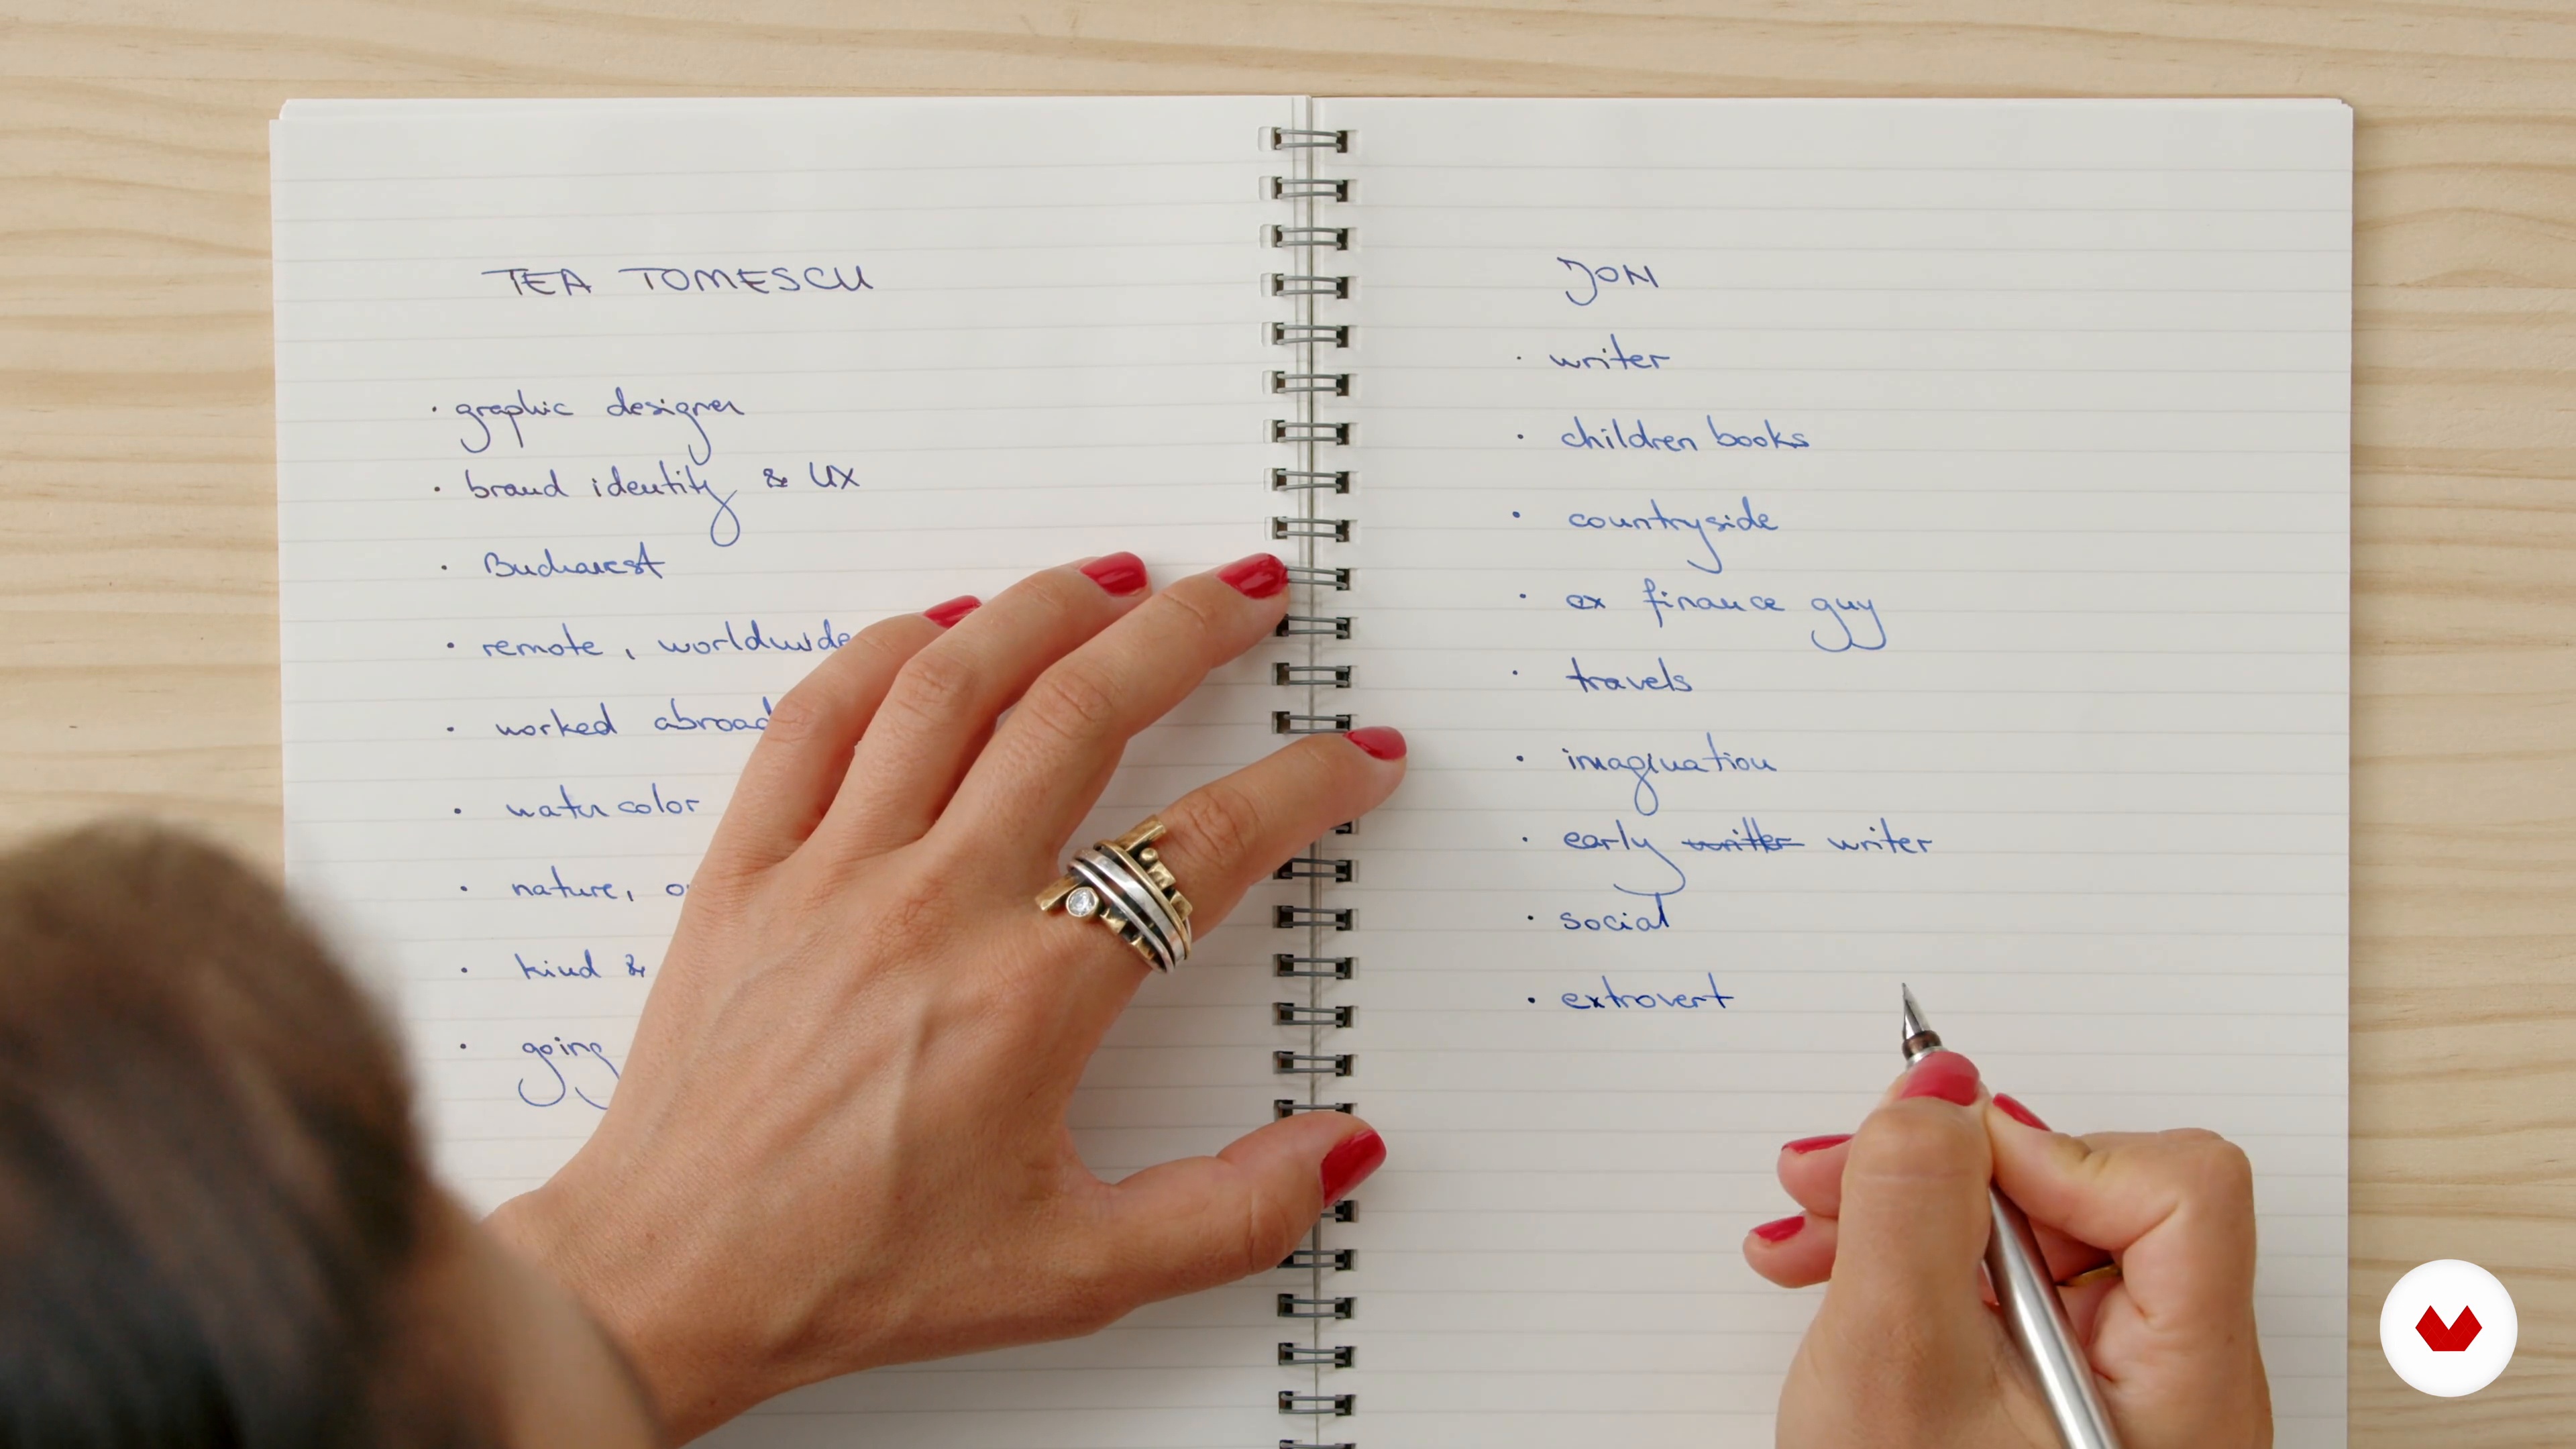 TEA TOMESCU
· graphic designer
· brand identity & UX
· Bucharest
· remote, worldwide
· worked abroad
· watercolor
· nature,
· kind &
· going
JON
· writer
· children books
· countryside
· ex finance guy
· travels
· imagination
· early writer writer
· social
· extrovert